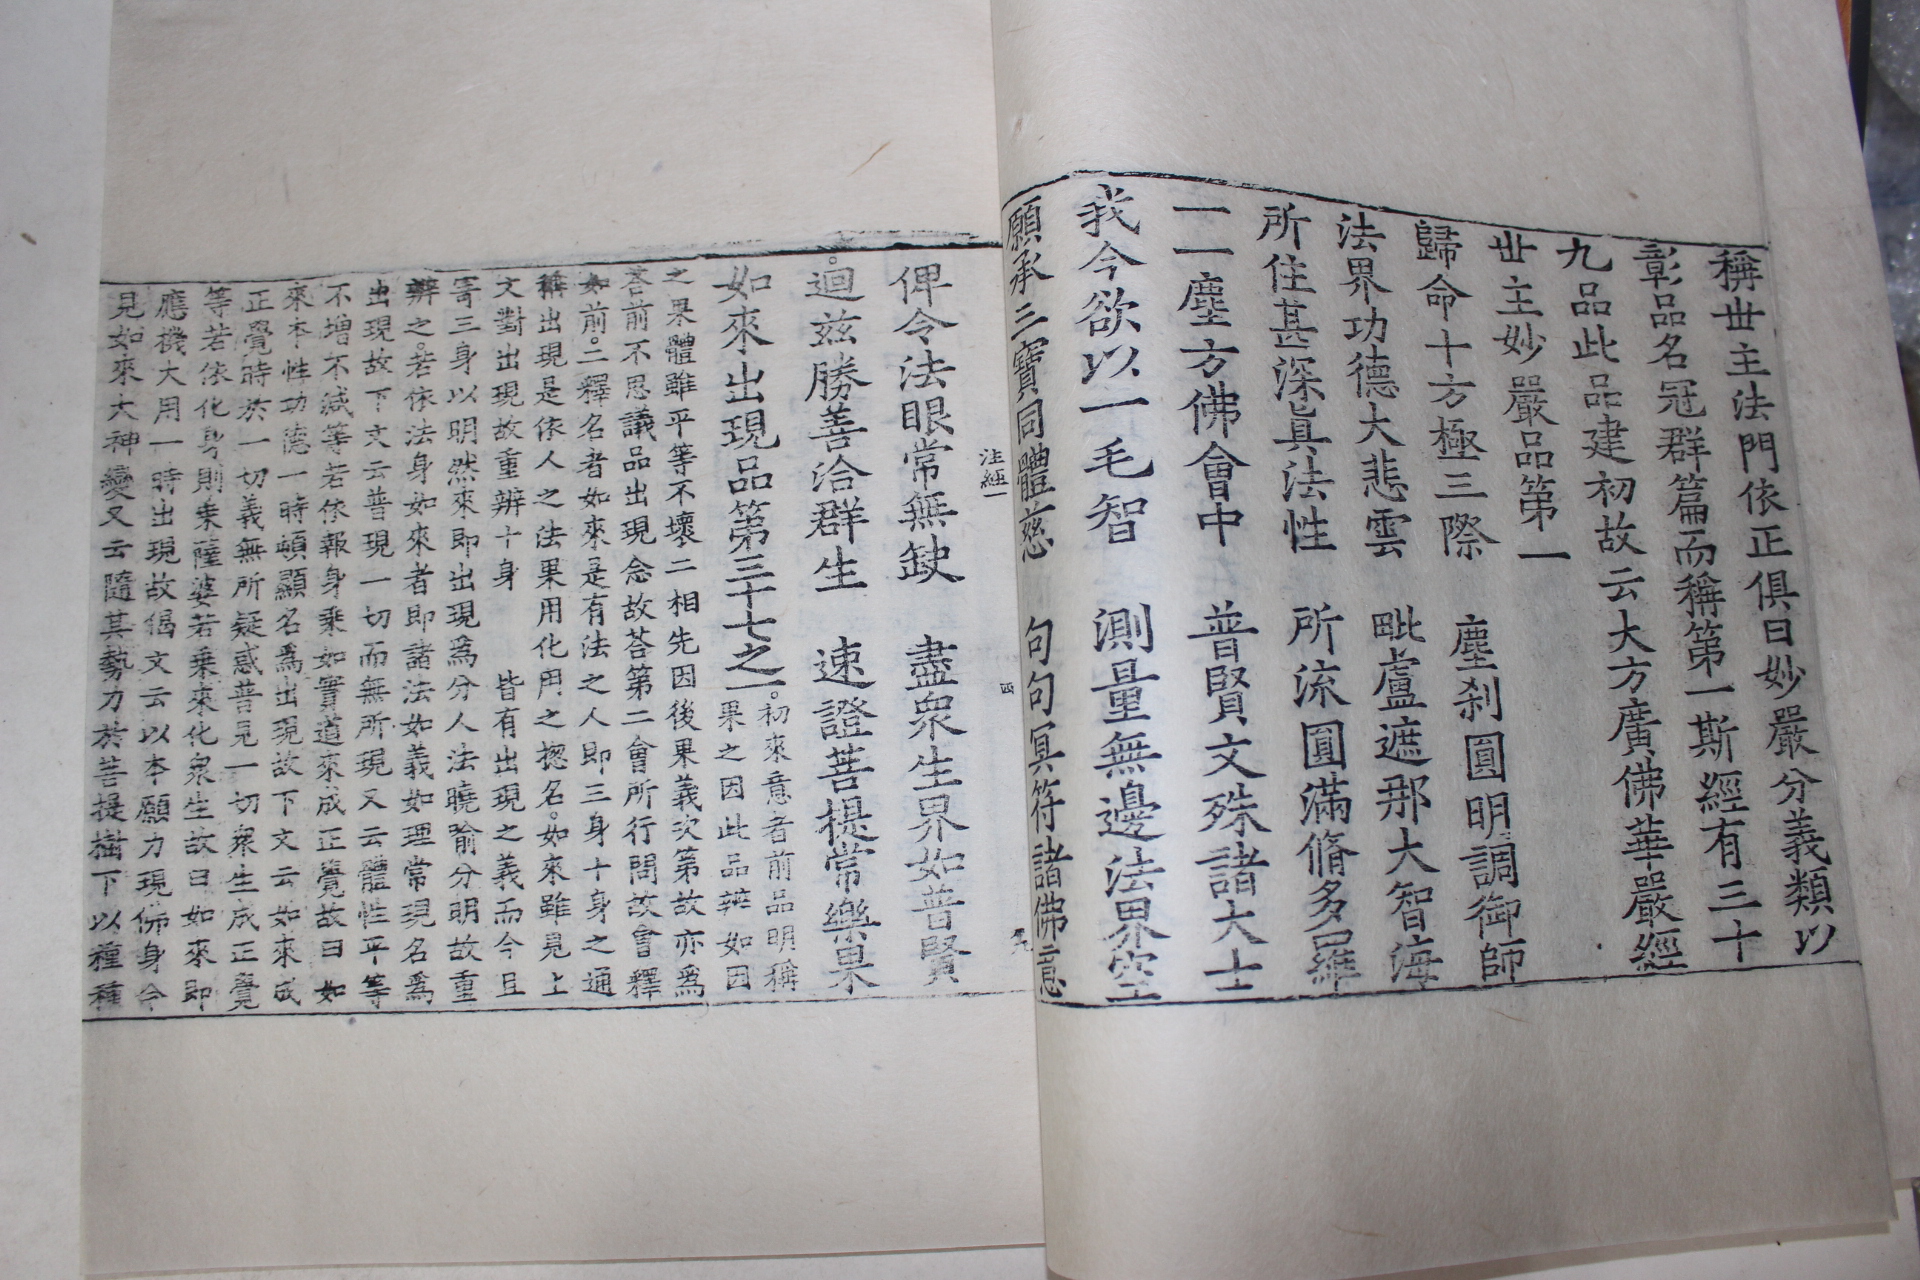 稱世主法門依正俱曰妙嚴分義類以
彰品名冠群篇而稱第一斯經有三十
九品此品建初故云大方廣佛華嚴經
世主妙嚴品第一
歸命十方極三際　塵刹圓明調御師
法界功德大悲雲　毗盧遮那大智海
所住甚深真法性　所流圓滿脩多羅
一一塵方佛會中　普賢文殊諸大士
我今欲以一毛智　測量無邊法界空
願承三寶同體慈　句句冥符諸佛意
注經一
四
俾令法眼常無缺　盡衆生界如普賢
迴兹勝善洽群生　速證菩提常樂果
如來出現品第三十七之一。初來意者前品明稱
果之因此品辨如因
之果體雖平等不壞二相先因後果義次第故亦為
荅前不思議品出現念故荅第二會所行問故會釋
如前。二釋名者如來是有法之人即三身十身之通
稱出現是依人之法果用化用之揔名。如來雖見上
文對出現故重辨十身　皆有出現之義而今且
寄三身以明然來即出現為分人法曉喻分明故重
辨之。若依法身如來者即諸法如義如理常現名為
出現故下文云普現一切而無所現又云體性平等
不增不減等若依報身乗如實道來成正覺故曰如
來本性功德一時頓顯名為出現故下文云如來成
正覺時於一切義無所疑惑普見一切衆生成正覺
等若依化身則乗薩婆若乗來化衆生故曰如來即
應機大用一時出現故偈文云以本願力現佛身令
見如來大神變又云隨其勢力於菩提樹下以種種